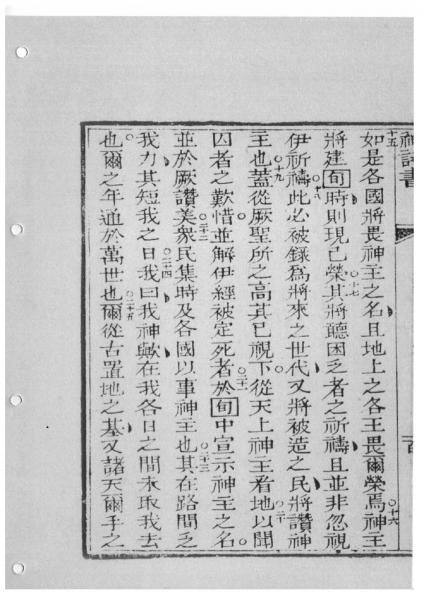 神詩書
十五如是各國將畏神主之名且地上之各王畏爾榮焉○十六神主
將建旬時則現己榮○十七其將聽困乏者之祈禱且並非忽視
伊祈禱○十八此必被錄爲將來之世代又將被造之民將讚神
主也○十九蓋從厥聖所之高其已視下從天上神主看地○二十以聞
囚者之歎惜並解伊經被定死者○二一於旬中宣示神主之名
並於厥讚美○二二衆民集時及各國以事神主也○二三其在路間乏
我力其短我之日○二四我曰我神歟在我各日之間未取我去
也爾之年通於萬世也○二五爾從古置地之基又諸天爾手之